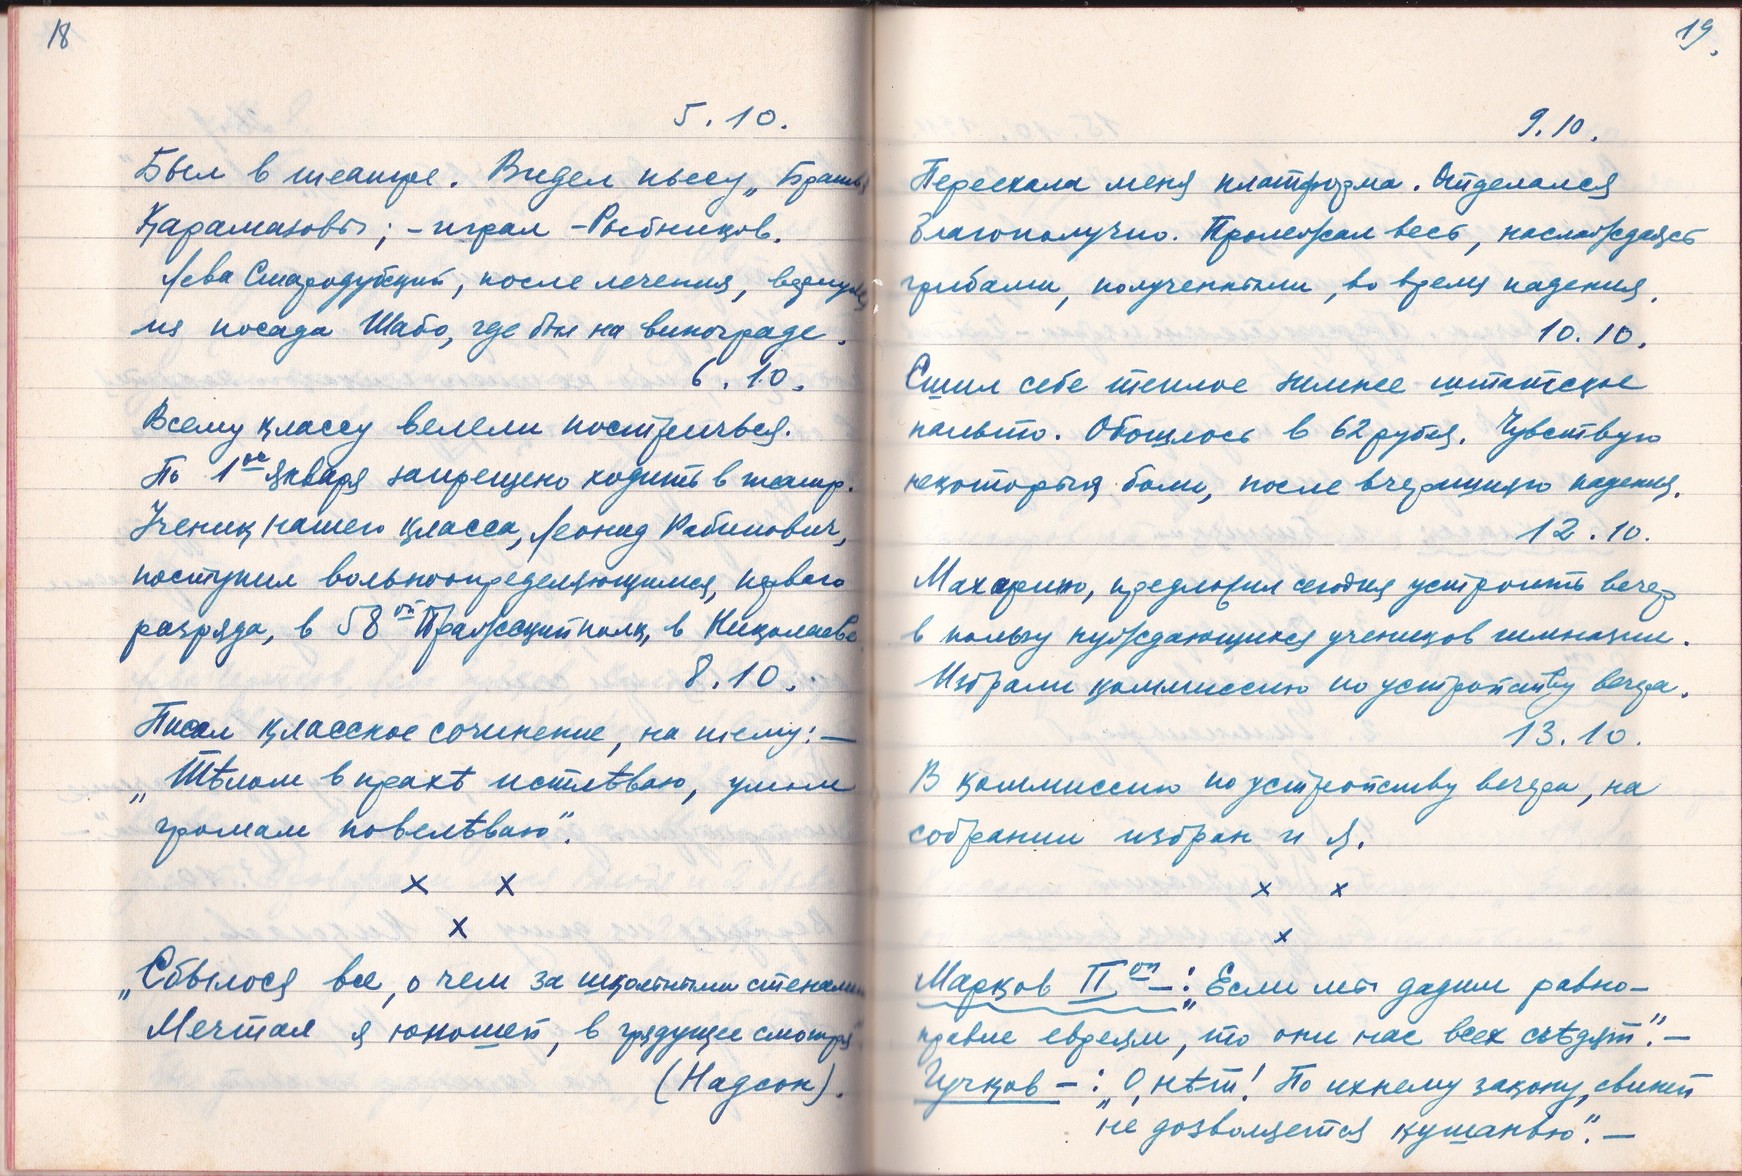 18
5.10.
Был в театре. Видел пьесу „Братья
Карамазовы; – играл – Рыбников.
Лева Стародубский, после лечения, вернулся
из посада Шабо, где был на винограде.
6.10.
Всему классу велели постричься.
По 1ое января запрещено ходить в театр.
Ученик нашего класса, Леонид Рабинович,
поступил вольноопределяющимся, первого
разряда, в 58ой Пражский полк, в Николаеве.
8.10.
Писал классное сочинение, на тему: —
„Тѣлом в прахѣ истлѣваю, умом
громам повелѣваю".
x x
x
„Сбылося все, о чем за школьными стенами
Мечтал я юношей, в грядущее смотря"
(Надсон).
19.
9.10.
Переехала меня платформа. Отделался
благополучно. Пролежал весь, наслаждаясь
грибами, полученными, во время падения.
10.10.
Сшил себе теплое зимнее штатское
пальто. Обошлось в 62 рубля. Чувствую
некоторыя боли, после вчерашняго падения.
12.10.
предложил сегодня устроить вечер
в пользу нуждающихся учеников гимназии.
Избрали коммиссию по устройству вечера.
13.10.
В коммиссию по устройству вечера, на
собрании избран и я.
x x
x
Марков IIой –: „Если мы дадим равно-
правие евреям, то они нас всех съѣдят". —
Гучков –: „О, нѣт! По ихнему закону, свиней
не дозволяется кушанью". —